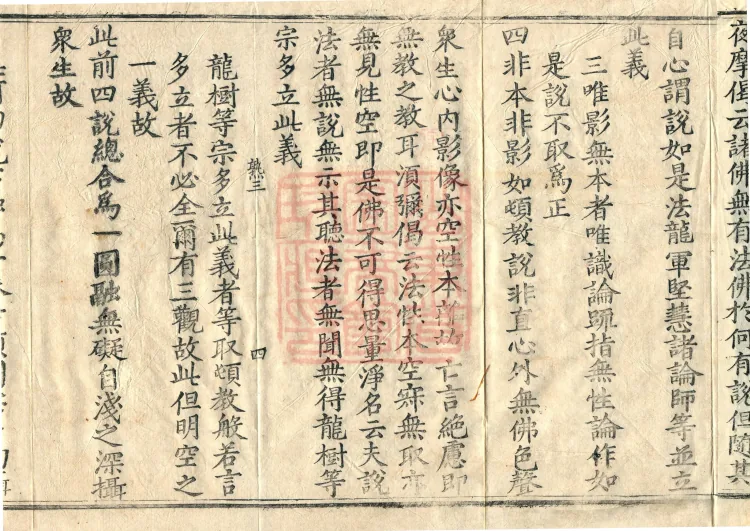 夜摩偈云諸佛無有法佛於何有說但隨其
自心謂說如是法龍軍堅慧諸論師等並立
此義
三唯影無本者唯識論䟽指無性論作如
是說不取爲正
四非本非影如頓教說非直心外無佛色聲
衆生心内影像亦空性本離故亡言絶慮即
無教之教耳須彌偈云法性本空寂無取亦
無見性空即是佛不可得思量淨名云夫說
法者無說無示其聽法者無聞無得龍樹等
宗多立此義
熟三
四
龍樹等宗多立此義者等取頓教般若言
多立者不必全爾有三觀故此但明空之
一義故
此前四說總合爲一圓融無礙自淺之深攝
衆生故